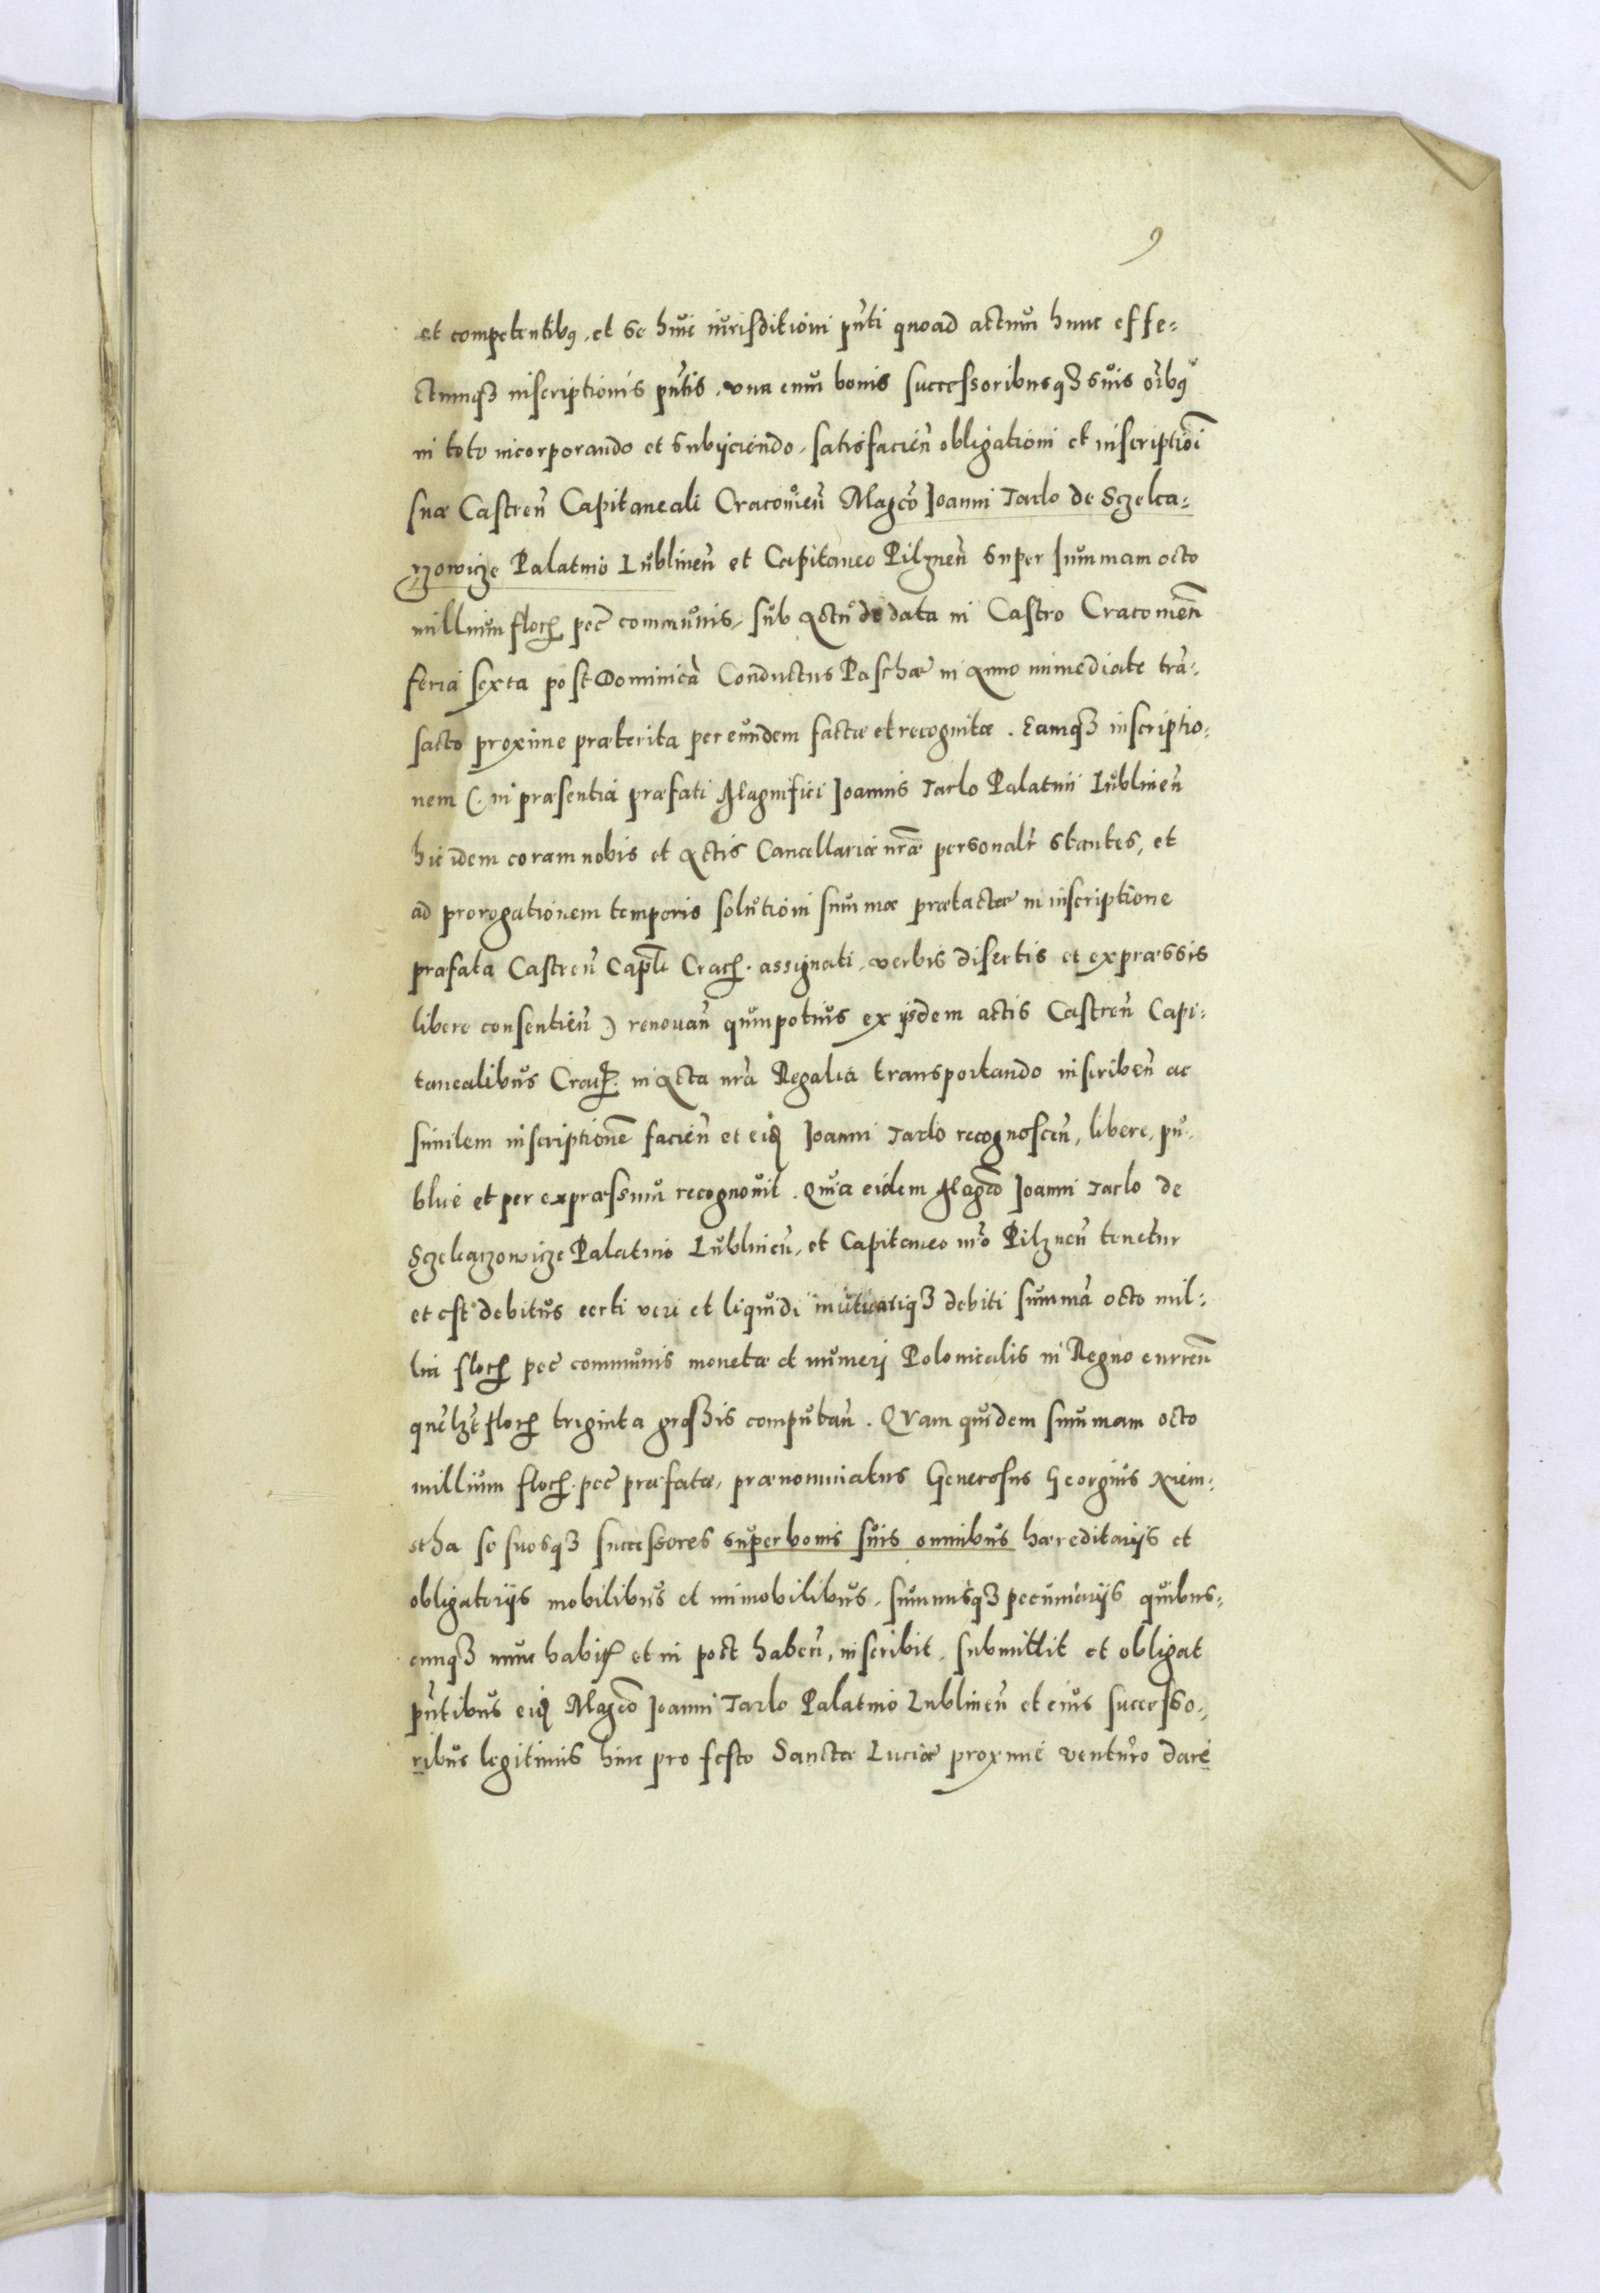 9
et competentibus, et se huic iurisditioni pñti quoad actum hunc effe-
ctumq3 inscriptionis pñtis, una cum bonis successoribusq3 suis oĩbus
in toto incorporando et subijciendo, satisfacieñ obligationi et inscriptioĩ
suæ Castreñ Capitaneali Cracouieñ Magco Joanni Tarlo de Sczeka-
rzowicze Palatino Lublineñ et Capitaneo Pilzneñ super summam octo
millium floř pec̃ communis, sub actu de data in Castro Cracouieñ
feria sexta post Dominicã Conductus Paschæ in anno immediate trã-
sacto proxime præterita per eundem factæ et recognitæ. Eamq3 inscriptio-
nem (in præsentia præfati Magnifici Joannis Tarlo Palatini Lublineñ
hic idem coram nobis et actis Cancellariæ nr̃æ personalr̃ stantes, et
ad prorogationem temporis solutioni summæ prætactæ in inscriptione
præfata Castreñ Capli Crac. assignati, verbis disertis et expræssis
libere consentieñ) renouañ quinpotius ex ijsdem actis Castreñ Capi-
tanealibus Crac. in acta nr̃a Regalia transportando inscribeñ ac
similem inscriptionẽ facieñ et eid Joanni Tarlo recognosceñ, libere, pu-
blicè et per expræssum recognouit. Quia eidem Magco Joanni Tarlo de
Sczekarzowicze Palatino Lublineñ, et Capitaneo nr̃o Pilzneñ tenetur
et est debitus certi veri et liquidi mutuatiq3 debiti summã octo mil-
lia floř pec̃ communis monetæ et numeri Polonicalis in Regno curreñ
quẽlzet floř triginta grossis computañ. Quam quidem summam octo
millium floř. pec̃ præfatæ, prænominatus Generosus Georgius Niem-
stha se suosq3 successores super bonis suis omnibus hæreditarijs et
obligatorijs mobilibus et immobilibus, summisq3 pecuniarijs quibus-
cunq3 nunc habit et in post habeñ, inscribit, submittit et obligat
pñtibus eid Magco Joanni Tarlo Palatino Lublineñ et eius successo-
ribus legitimis hinc pro festo Sanctæ Luciæ proximè venturo dare